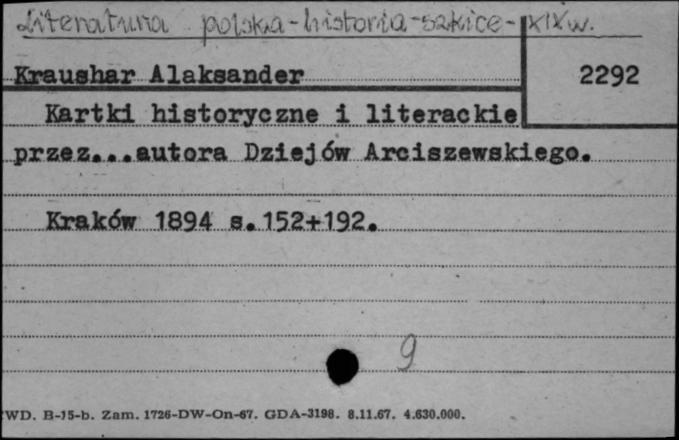 Literatura polska-historia-szkice-XIXw.
Kraushar Alaksander 2292
Kartki historyczne i literackie
przez...autora Dziejów Arciszewskiego.
Kraków 1894 s.152+192.
9
WD. B-15-b. Zam. 1726-DW-On-67. GDA-3198. 8.11.67. 4.630.000.